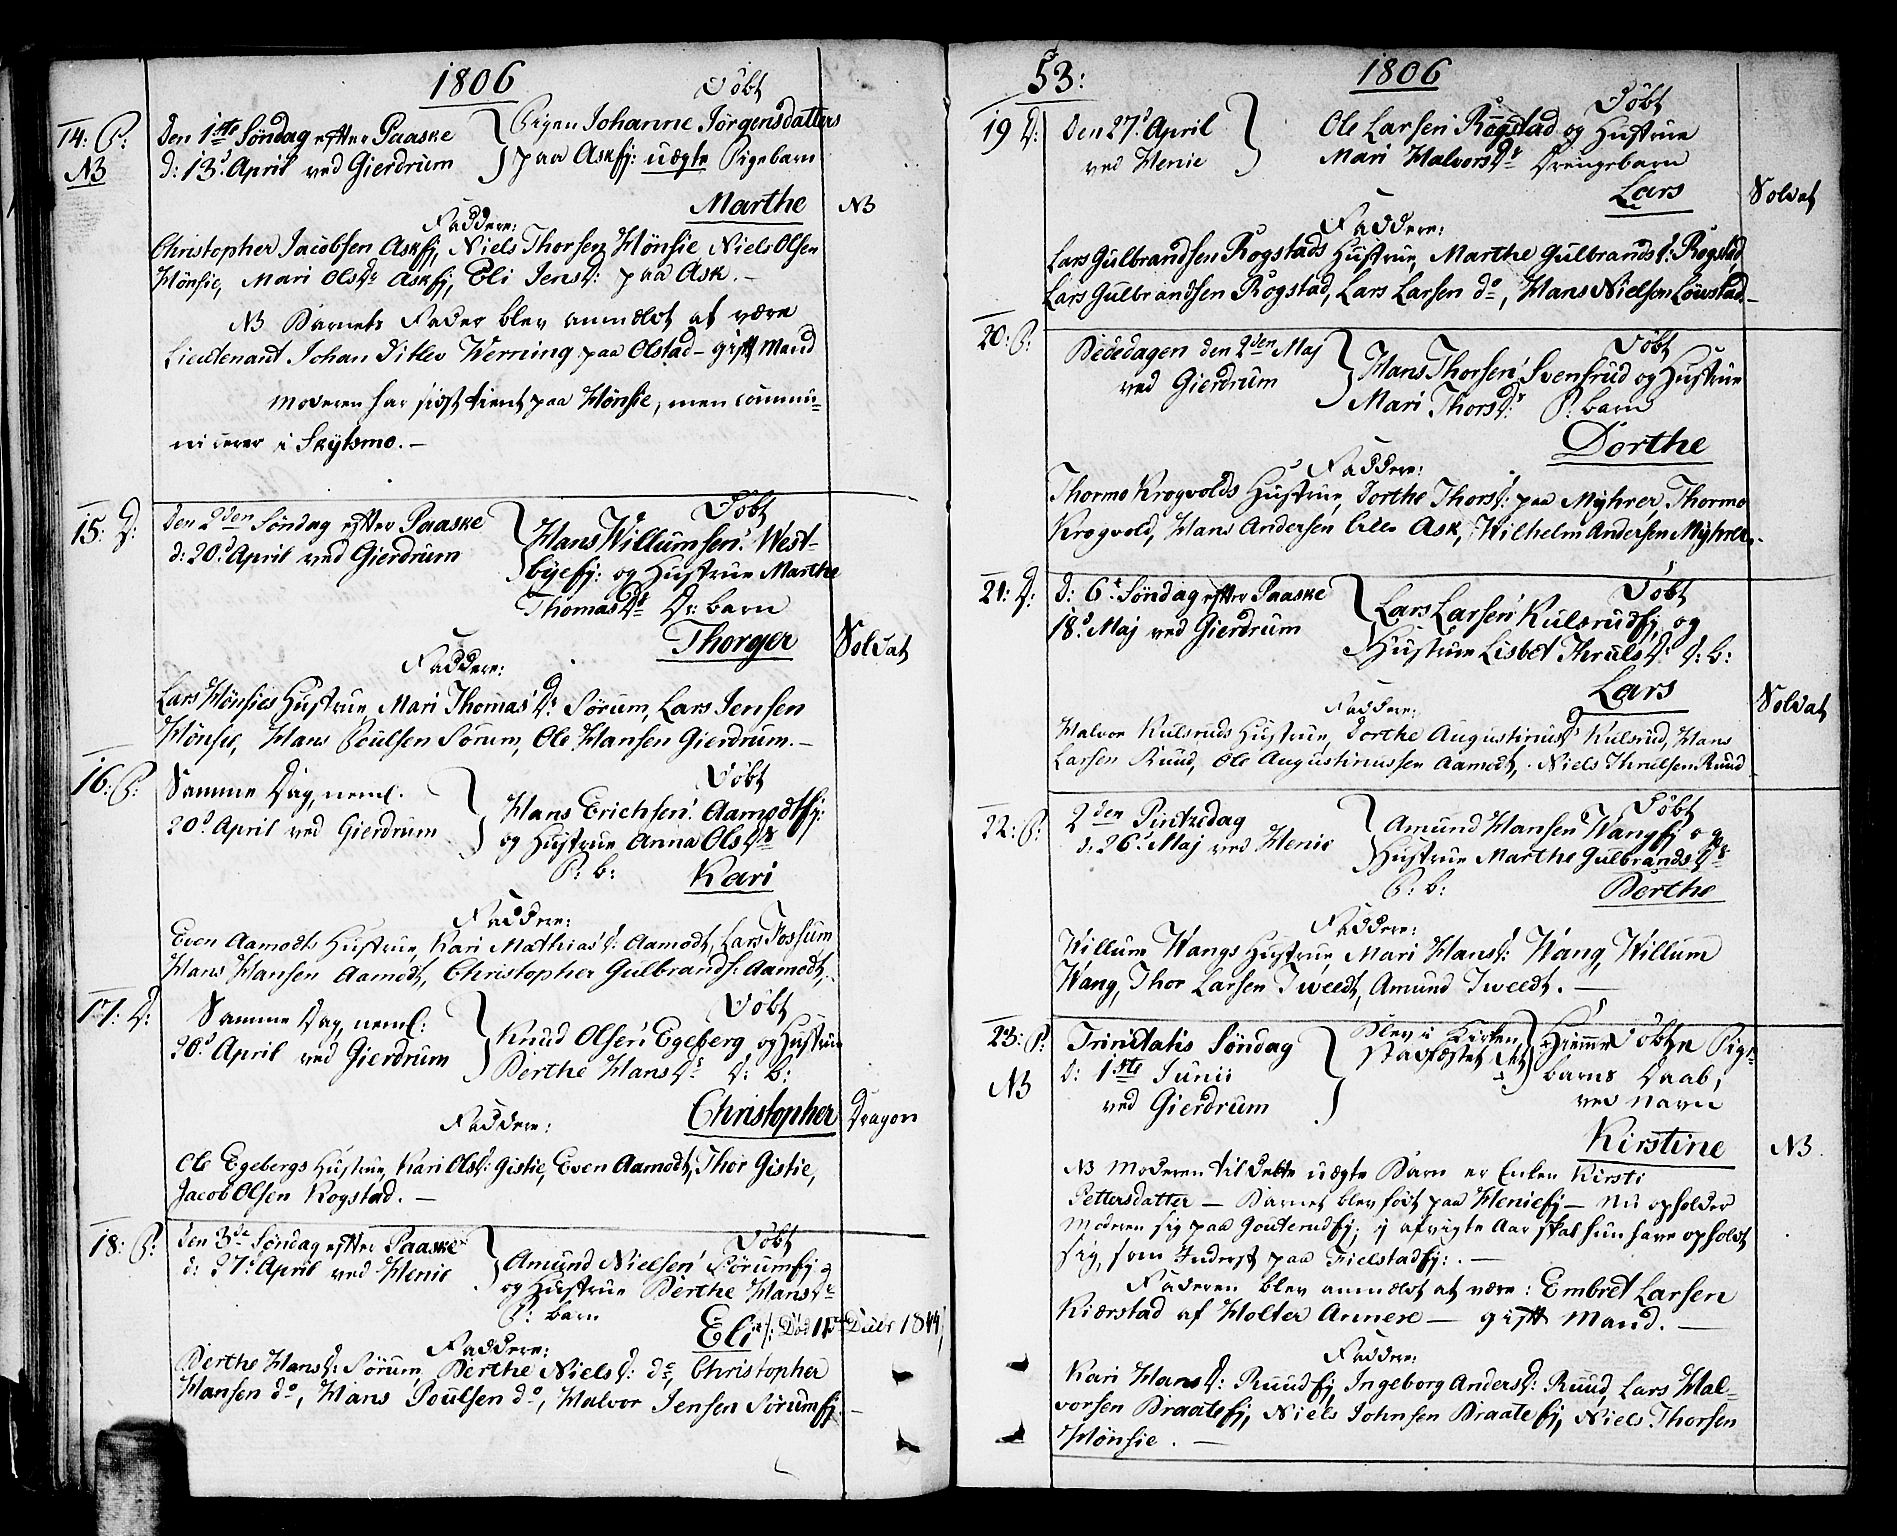 1806
14: P:
NB
Den 1ste Søndag efter Paaske
d: 13de April ved Gierdrum
Døbt
Pigen Johanne Jørgensdatters
paa Askej: uægte Pigebarn
Marthe
NB
Faddere:
Christopher Jacobsen Askej, Niels Thorsen Hönsie, Niels Olsen
Hönsie, Mari Olsdr Askej, Eli Jensd: paa Ask. –
NB Barnets Fader blev anmeldt at være
Lieutenant Johan Ditlev Werning paa Olstad – gift Mand
Moderen har sidst tient paa Hönsie, men commu-
nicerer i Skytsmo. –
15: D:
Den 2den Søndag efter Paaske
d: 20de April ved Gierdrum
Døbt
Hans Willumsen: West-
byeej: og Hustrue Marthe
Thomasdr Dr: barn
Thorger
Soldat
Faddere:
Lars Hönsies Hustrue, Mari Thomasdr: Sørum, Lars Jensen
Hönsie, Hans Poulsen Sørum, Ole Hansen Gierdrum. –
16: P:
Samme Dag, neml.
20de April ved Gierdrum
Døbt
Hans Erichsen: Aamodtej:
og Hustrue Anna Olsdr
P: b: Kari
Faddere:
Even Aamodts Hustrue, Kari Mathiasd: Aamodt, Lars Fossum
Hans Hansen Aamodt, Christopher Gulbrands: Aamodt.
17: D:
Samme Dag, neml:
20de April ved Gierdrum
Døbt
Knud Olsen: Egeberg og Hustrue
Berthe Hansdr D: b:
Christopher
Dragon
Faddere:
Ole Egebergs Hustrue, Kari Olsd: Gistie, Even Aamodt, Thor Gistie,
Jacob Olsen Rogstad. –
18: P:
Den 3de Søndag efter Paaske
d: 27de April ved Henie
Døbt
Amund Nielsen Sørumej
og Hustrue Berthe Hansdr
P: barn
Eli /: Död 11te Decbr 1844
Faddere:
Berthe Hansd: Sørum, Berthe Nielsd: do, Christopher
Hansen do, Hans Poulsen do, Halvor Jensen Sørumej. –
53:
1806
19 D:
Den 27de April
ved Henie
Døbt
Ole Larsen Rogstad og Hustrue
Mari Halvorsdr Drengebarn
Lars
Soldat
Faddere:
Lars Gulbrandsen Rogstads Hustrue, Marthe Gulbrandsd: Rogstad,
Lars Gulbrandsen Rogstad, Lars Larsen do, Hans Nielsen Löwstad. –
20: P:
Bededagen den 2den Maj
ved Gierdrum
Døbt
Hans Thorsen Svensrud og Hustrue
Mari Thorsdr: P: barn
Dorthe
Faddere:
Thormo Krogvolds Hustrue, Dorthe Thorsd: paa Myhrer, Thormo
Krogvold, Hans Andersen Ask, Wilhelm Andersen Myhrer. –
21: D:
d: 6te Søndag efter Paaske
18de Maj ved Gierdrum
Døbt
Lars Larsen Kulsrudej, og
Hustrue Lisbet Thrulsd: D: b:
Lars
Soldat
Faddere:
Halvor Kulsruds Hustrue, Dorthe Augustinusd: Kulsrud, Hans
Larsen Ruud, Ole Augustinussen Aamodt, Niels Thrulsen Ruud
22: P:
2den Pintzedag
d: 26de Maj ved Henie
Døbt
Amund Hansen Wangej og
Hustrue Marthe Gulbrandsdr
P: b: Berthe
Faddere:
Willum Wangs Hustrue, Mari Hansd: Wang, Willum
Wang, Thor Larsen Tweedt, Amund Tweedt. –
23: P:
NB
Trinitatis Søndag
d: 1ste Junii
ved Gierdrum
Blev i Kirken
stadfæstet det
Hiemme Døbte Pige-
barns Daab,
ved Navn
Kirstine
NB.
NB Moderen til dette uægte Barn er Enken Kirsti
Pettersdatter – Barnet blev födt paa Henieej – Nu opholder
Moderen sig paa Gouterudej; i afvigte Aar skal hun have opholdt
sig, som Inderst paa Fielstadej: –
Faderen blev anmeldt at være: Embret Larsen
Kiærstad af Holter Annexe – gift Mand. –
Faddere:
Kari Hansd: Ruudej, Ingeborg Andersd: Ruud, Lars Hal-
vorsen Braateej, Niels Johnsen Braateej, Niels Thorsen
Hönsie. –